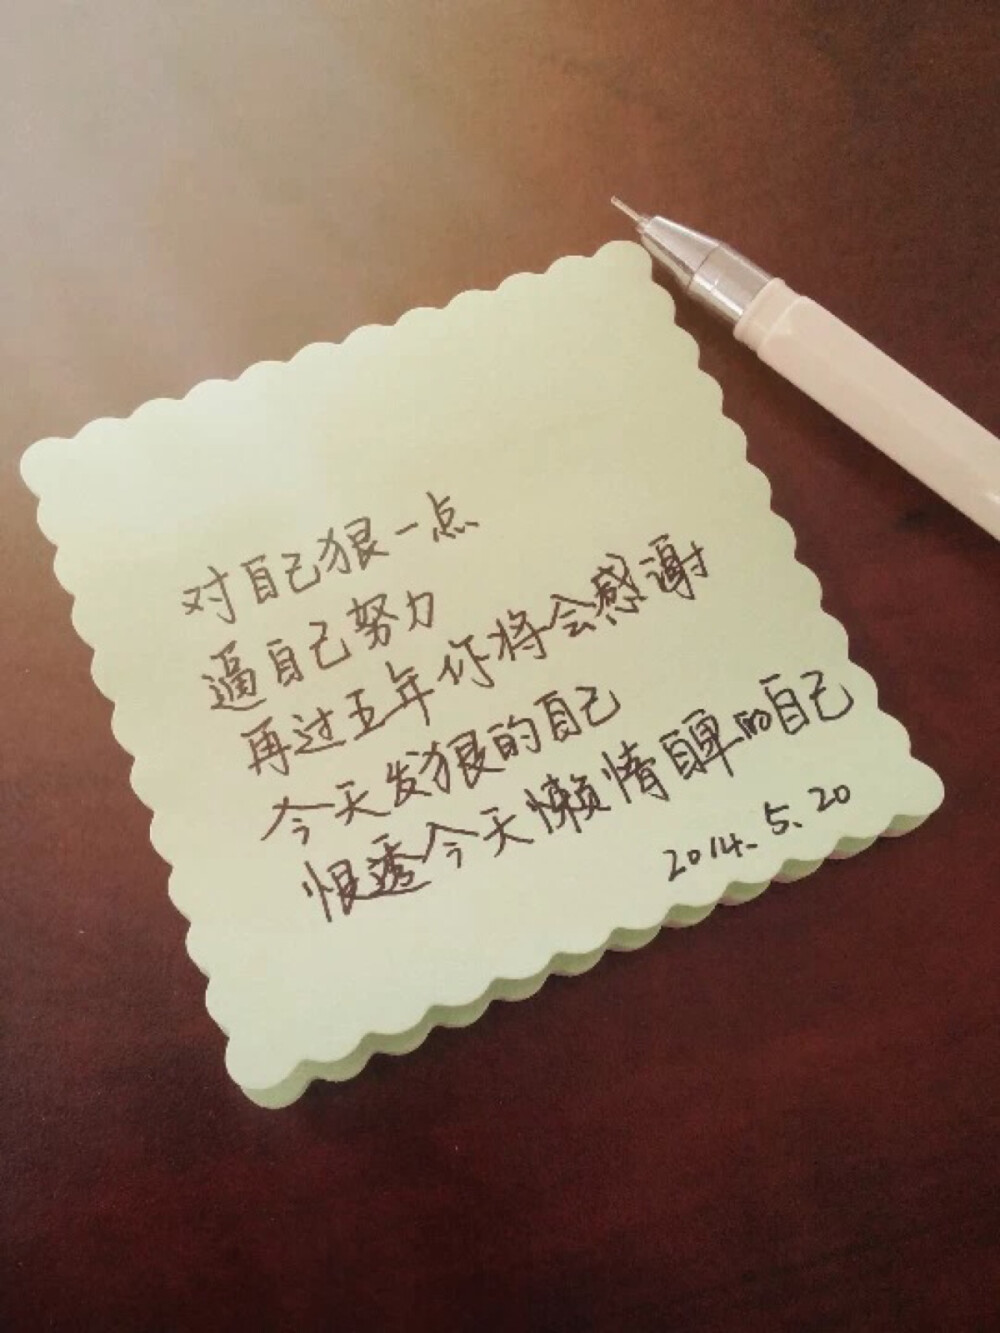 对自己狠一点
逼自己努力
再过五年你将会感谢
今天发狠的自己
恨透今天懒惰自卑的自己
2014.5.20